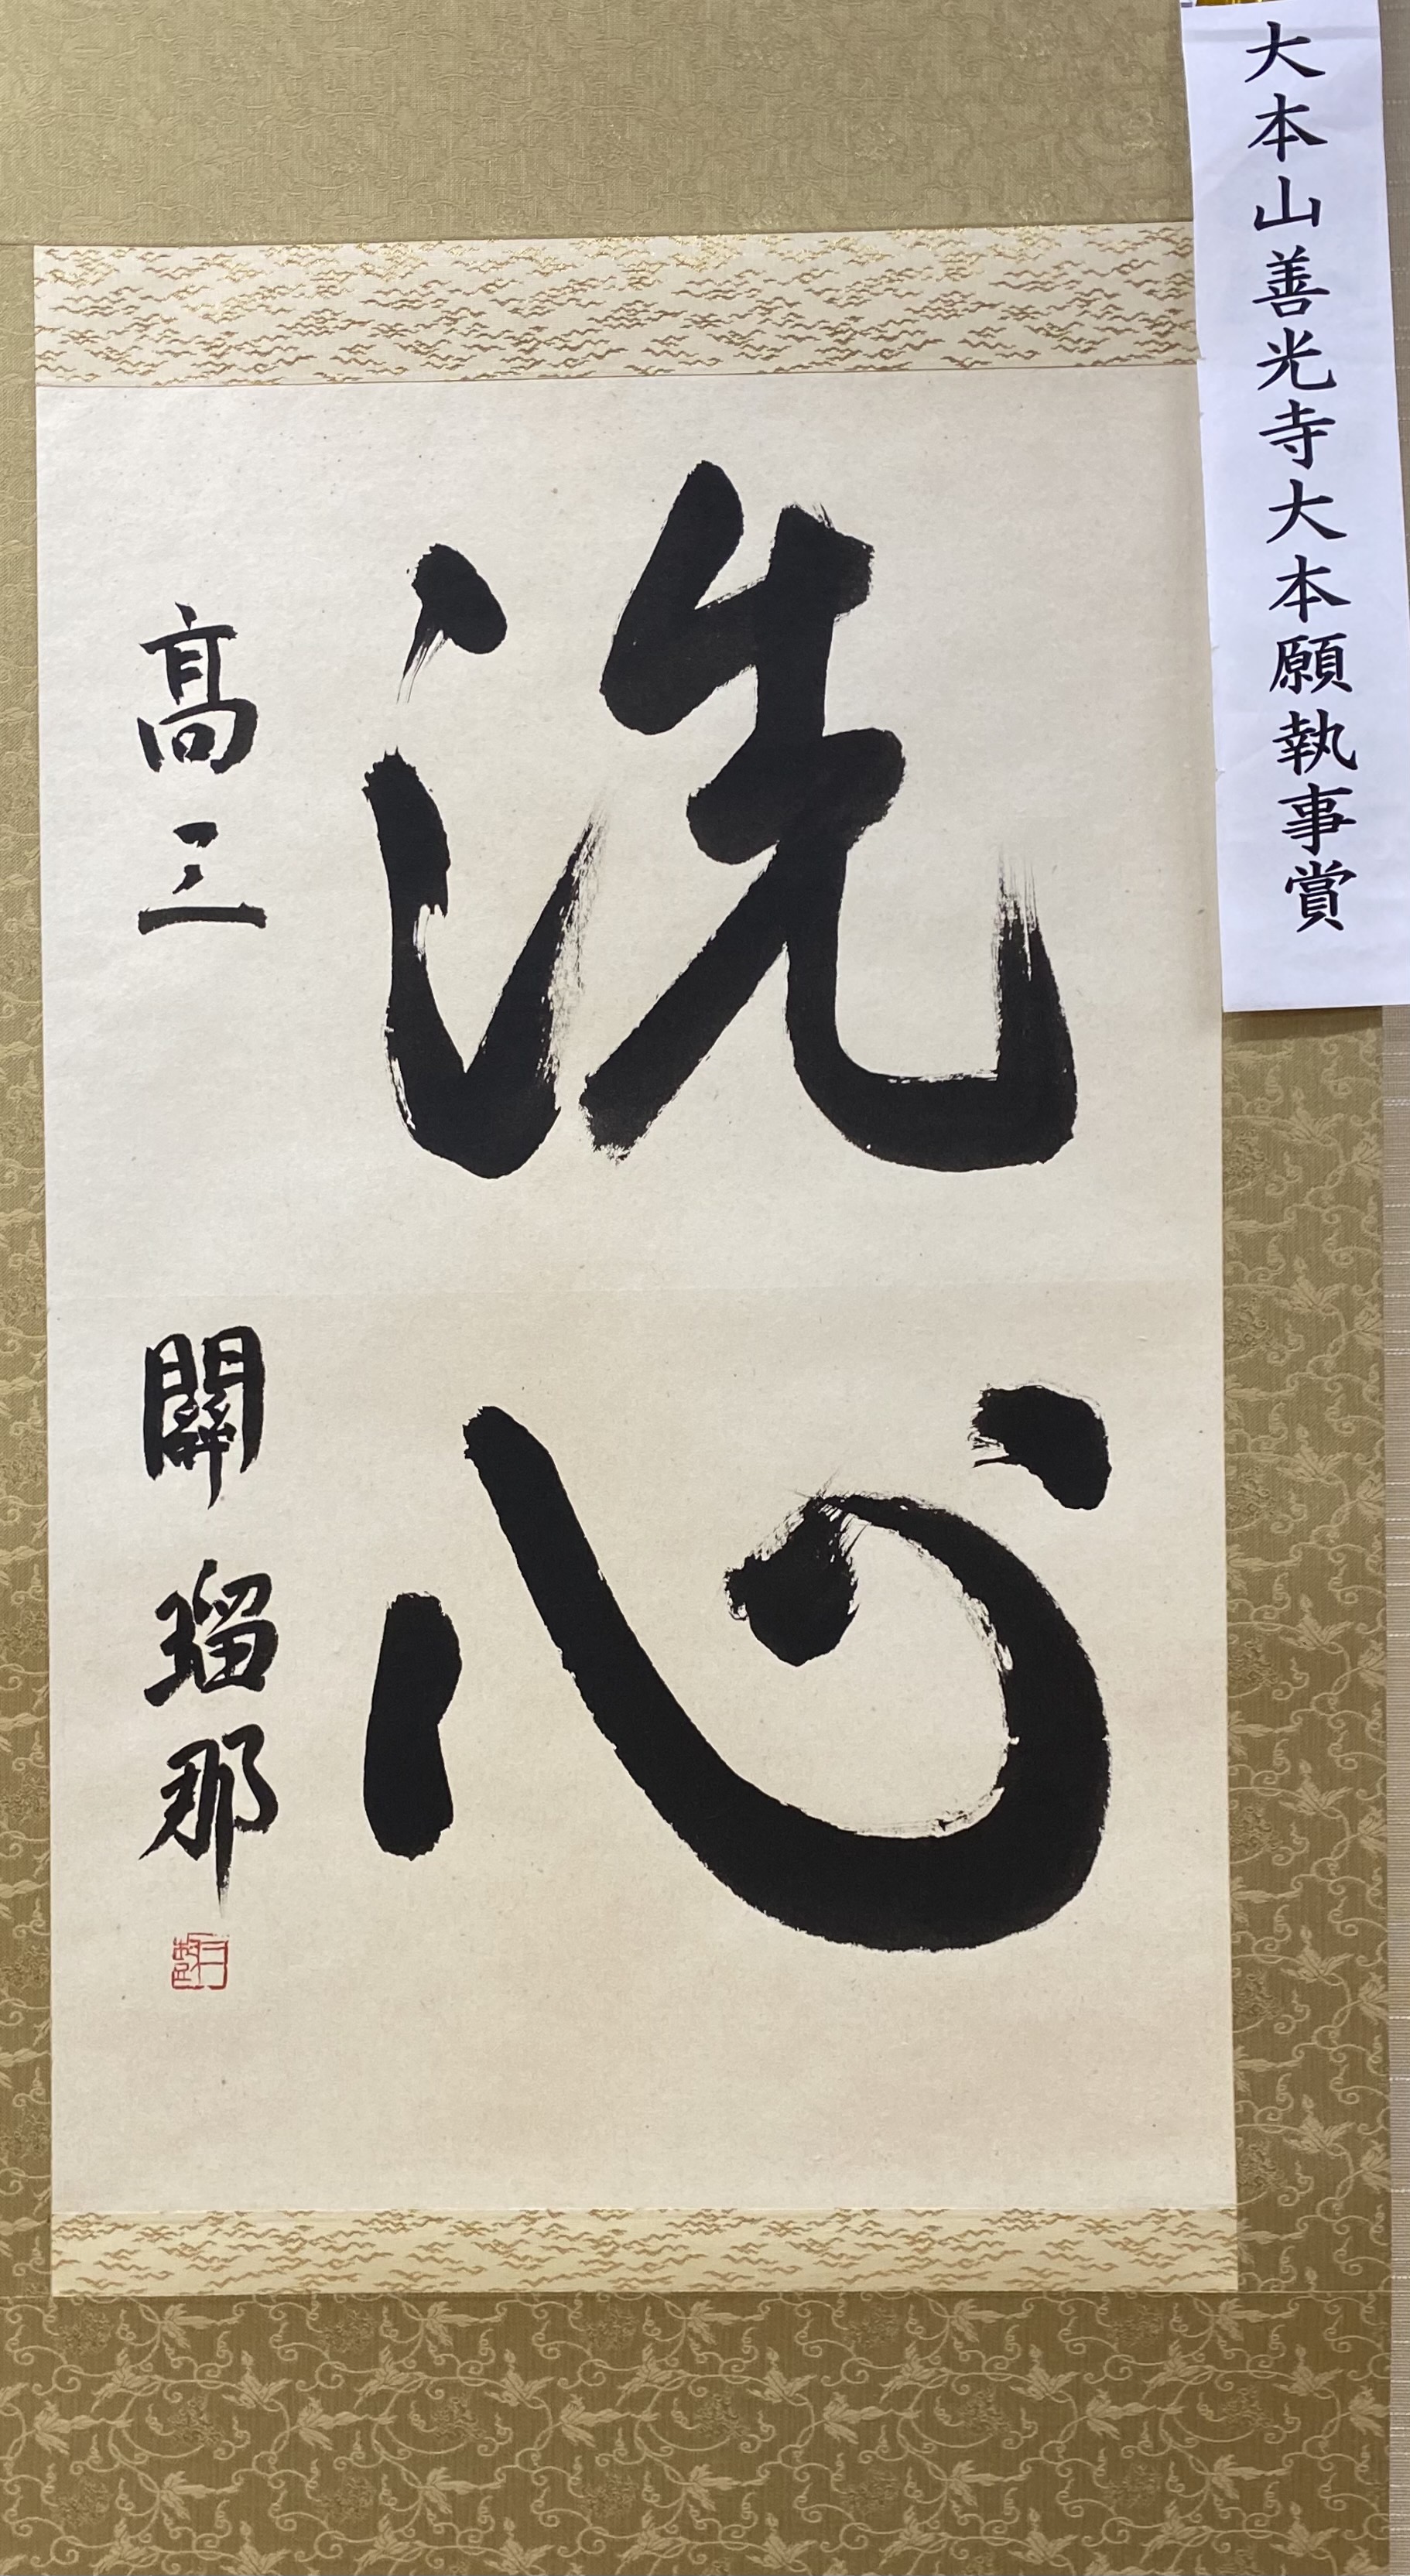 大本山善光寺大本願執事賞
洗心
髙三 關瑠那